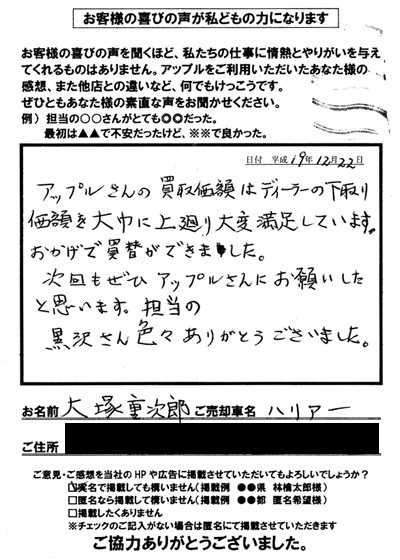 お客様の喜びの声が私どもの力になります
お客様の喜びの声を聞くほど、私たちの仕事に情熱とやりがいを与え
てくれるものはありません。アップルをご利用いただいたあなた様の
感想、また他店との違いなど、何でもけっこうです。
ぜひともあなた様の素直な声をお聞かせください。
例）担当の○○さんがとても◎◎だった。
最初は▲▲で不安だったけど、※※で良かった。
日付 平成 19年 12月 22日
アップルさんの買取価額はディーラーの下取り
価額を大巾に上廻り大変満足しています。
おかげで買替ができました。
次回もぜひアップルさんにお願いした
と思います。担当の
黒沢さん色々ありがとうございました。
お名前 大塚重次郎 ご売却車名 ハリアー
ご住所
ご意見・ご感想を当社のHPや広告に掲載させていただいてもよろしいでしょうか？
☑実名で掲載しても構いません（掲載例 ●●県 林檎太郎様）
□匿名なら掲載して構いません（掲載例 ●●都 匿名希望様）
□掲載したくありません
※チェックのご記入がない場合は匿名にて掲載させていただきます
ご協力ありがとうございました。